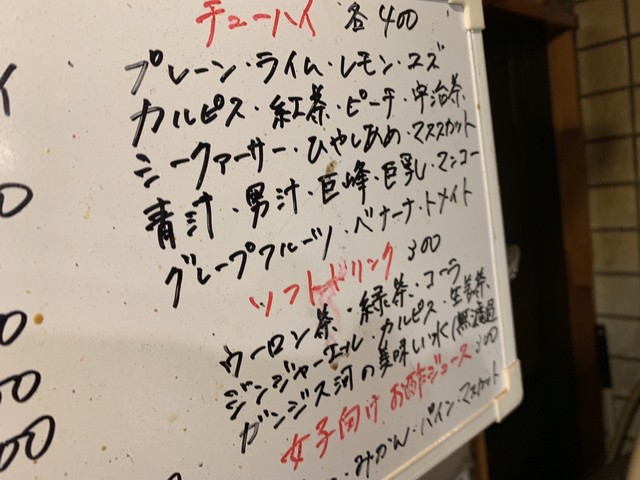 チューハイ 各400
プレーン・ライム・レモン・ユズ
カルピス・紅茶・ピーチ・宇治茶
シークァーサー・ひやしあめ・マスカット
青汁・男汁・巨峰・巨乳・マンコー
グレープフルーツ・ベナーナ・トメイト
ソフトドリンク 300
ウーロン茶・緑茶・コーラ
ジンジャーエル・カルピス・生姜茶
ガンジス河の美味しい水(無濾過
女子向け お酢ジュース 300
・みかん・パイン・マスカット